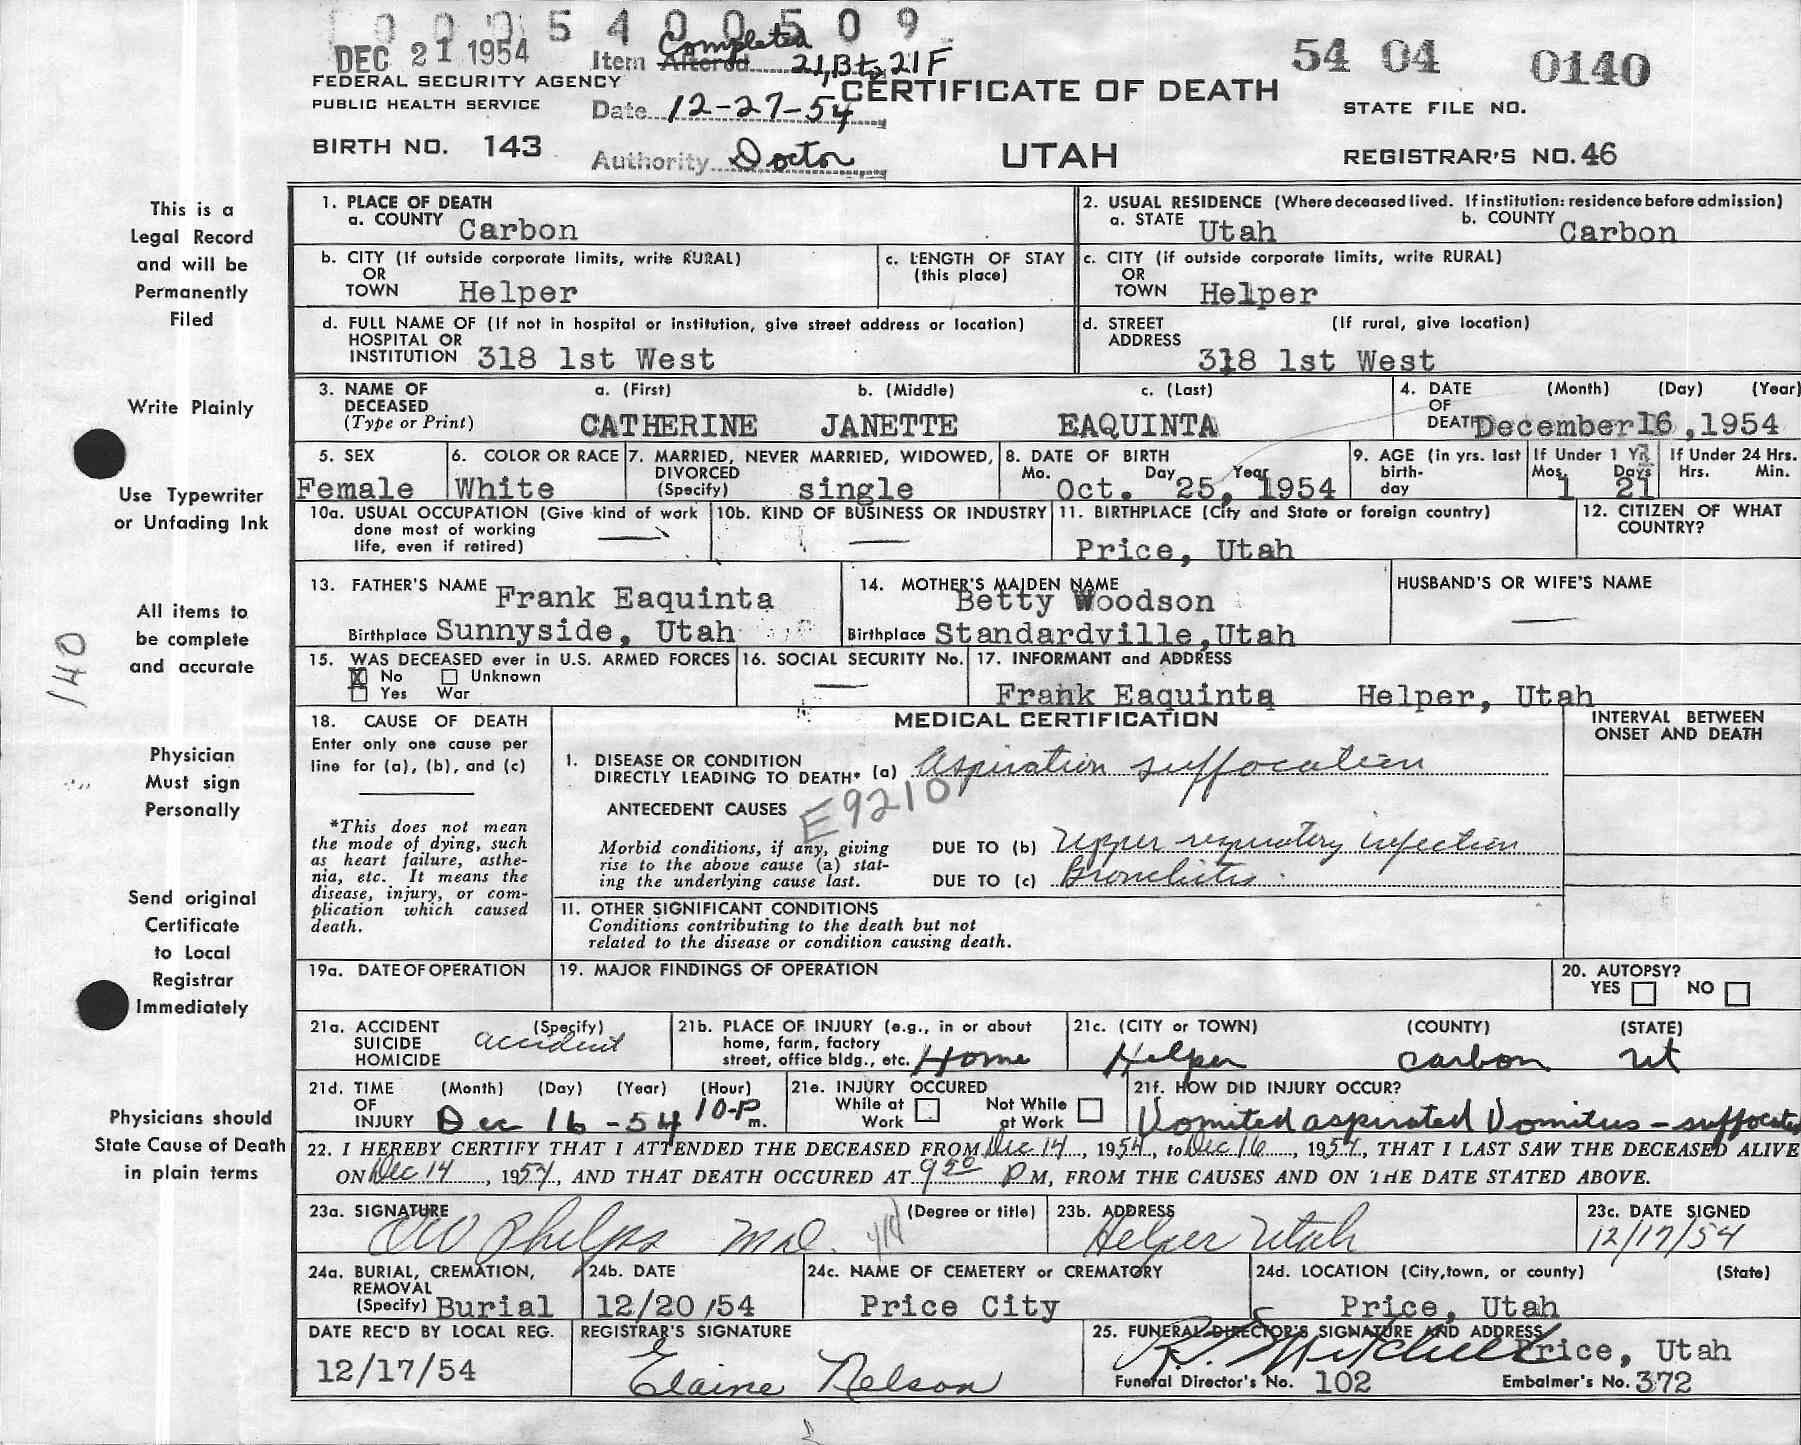 0 0 0 5 4 0 0 5 0 9
DEC 21 1954
Completed
Item Altered 21,B to 21F
54 04 0140
FEDERAL SECURITY AGENCY
PUBLIC HEALTH SERVICE
Date 12-27-54
CERTIFICATE OF DEATH
STATE FILE NO.
BIRTH NO. 143
Authority Doctor
UTAH
REGISTRAR'S NO. 46
This is a
Legal Record
and will be
Permanently
Filed
Write Plainly
Use Typewriter
or Unfading Ink
All items to
be complete
and accurate
140
Physician
Must sign
Personally
Send original
Certificate
to Local
Registrar
Immediately
Physicians should
State Cause of Death
in plain terms
1. PLACE OF DEATH
a. COUNTY Carbon
2. USUAL RESIDENCE (Where deceased lived. If institution: residence before admission)
a. STATE Utah b. COUNTY Carbon
b. CITY (If outside corporate limits, write RURAL)
OR
TOWN Helper
c. LENGTH OF STAY
(this place)
c. CITY (if outside corporate limits, write RURAL)
OR
TOWN Helper
d. FULL NAME OF (If not in hospital or institution, give street address or location)
HOSPITAL OR
INSTITUTION 318 1st West
d. STREET (If rural, give location)
ADDRESS
318 1st West
3. NAME OF a. (First) b. (Middle) c. (Last)
DECEASED
(Type or Print) CATHERINE JANETTE EAQUINTA
4. DATE (Month) (Day) (Year)
OF
DEATH December 16, 1954
5. SEX
Female
6. COLOR OR RACE
White
7. MARRIED, NEVER MARRIED, WIDOWED,
DIVORCED
(Specify) single
8. DATE OF BIRTH
Mo. Day Year
Oct. 25, 1954
9. AGE (in yrs. last
birth-
day
If Under 1 Yr.
Mos. Days
1 21
If Under 24 Hrs.
Hrs. Min.
10a. USUAL OCCUPATION (Give kind of work
done most of working
life, even if retired)
10b. KIND OF BUSINESS OR INDUSTRY
11. BIRTHPLACE (City and State or foreign country)
Price, Utah
12. CITIZEN OF WHAT
COUNTRY?
13. FATHER'S NAME Frank Eaquinta
Birthplace Sunnyside, Utah
14. MOTHER'S MAIDEN NAME
Betty Woodson
Birthplace Standardville, Utah
HUSBAND'S OR WIFE'S NAME
15. WAS DECEASED ever in U.S. ARMED FORCES
X No Unknown
Yes War
16. SOCIAL SECURITY No.
17. INFORMANT and ADDRESS
Frank Eaquinta Helper, Utah
18. CAUSE OF DEATH
Enter only one cause per
line for (a), (b), and (c)
*This does not mean
the mode of dying, such
as heart failure, asthe-
nia, etc. It means the
disease, injury, or com-
plication which caused
death.
MEDICAL CERTIFICATION
INTERVAL BETWEEN
ONSET AND DEATH
1. DISEASE OR CONDITION
DIRECTLY LEADING TO DEATH* (a) Aspiration suffocation
ANTECEDENT CAUSES E9210
Morbid conditions, if any, giving
rise to the above cause (a) stat-
ing the underlying cause last.
DUE TO (b) Upper respiratory infection
DUE TO (c) Bronchitis.
11. OTHER SIGNIFICANT CONDITIONS
Conditions contributing to the death but not
related to the disease or condition causing death.
19a. DATE OF OPERATION
19. MAJOR FINDINGS OF OPERATION
20. AUTOPSY?
YES NO
21a. ACCIDENT (Specify)
SUICIDE accident
HOMICIDE
21b. PLACE OF INJURY (e.g., in or about
home, farm, factory
street, office bldg., etc. Home
21c. (CITY or TOWN) (COUNTY) (STATE)
Helper carbon ut
21d. TIME (Month) (Day) (Year) (Hour)
OF
INJURY Dec 16 -54 10-P m.
21e. INJURY OCCURED
While at Not While
Work at Work
21f. HOW DID INJURY OCCUR?
Vomited aspirated Vomitus - suffocated
22. I HEREBY CERTIFY THAT I ATTENDED THE DECEASED FROM Dec 14, 1954, to Dec 16, 1954, THAT I LAST SAW THE DECEASED ALIVE
ON Dec 14, 1954, AND THAT DEATH OCCURED AT 9 50 P M, FROM THE CAUSES AND ON THE DATE STATED ABOVE.
23a. SIGNATURE (Degree or title)
OW Phelps M.D.
23b. ADDRESS
Helper Utah
23c. DATE SIGNED
12/17/54
24a. BURIAL, CREMATION,
REMOVAL
(Specify) Burial
24b. DATE
12/20/54
24c. NAME OF CEMETERY or CREMATORY
Price City
24d. LOCATION (City, town, or county) (State)
Price, Utah
DATE REC'D BY LOCAL REG.
12/17/54
REGISTRAR'S SIGNATURE
Elaine Nelson
25. FUNERAL DIRECTOR'S SIGNATURE AND ADDRESS
Mitchell Price, Utah
Funeral Director's No. 102 Embalmer's No. 372